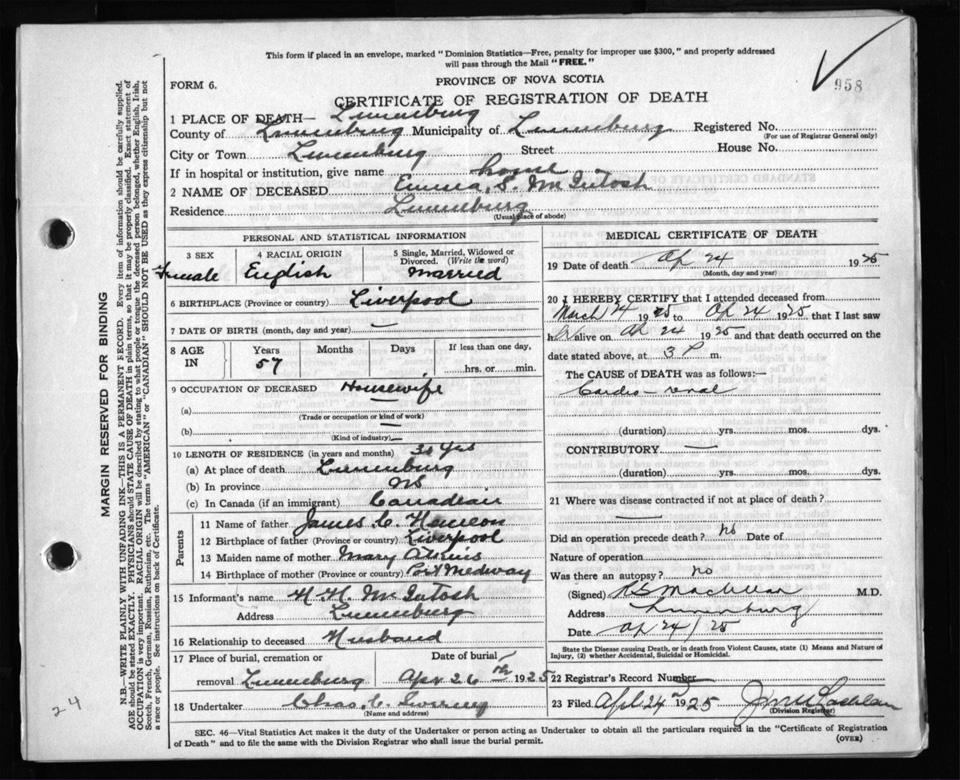 This form if placed in an envelope, marked "Dominion Statistics—Free, penalty for improper use $300," and properly addressed
will pass through the Mail "FREE."
958
FORM 6.
PROVINCE OF NOVA SCOTIA
CERTIFICATE OF REGISTRATION OF DEATH
1 PLACE OF DEATH— Lunenburg
County of Lunenburg Municipality of Lunenburg Registered No.
(For use of Registrar General only)
City or Town Lunenburg Street House No.
If in hospital or institution, give name home
2 NAME OF DECEASED Emma S. McIntosh
Residence Lunenburg
(Usual place of abode)
PERSONAL AND STATISTICAL INFORMATION
3 SEX
Female
4 RACIAL ORIGIN
English
5 Single, Married, Widowed or
Divorced. (Write the word)
Married
6 BIRTHPLACE (Province or country) Liverpool
7 DATE OF BIRTH (month, day and year) —
8 AGE
IN
Years
57
Months
Days
If less than one day,
hrs. or min.
9 OCCUPATION OF DECEASED Housewife
(a)
(Trade or occupation or kind of work)
(b) —
(Kind of industry) —
10 LENGTH OF RESIDENCE (in years and months) 30 yrs
(a) At place of death Lunenburg
(b) In province NS
(c) In Canada (if an immigrant) Canadian
Parents
11 Name of father James C.
12 Birthplace of father (Province or country) Liverpool
13 Maiden name of mother Mary Atkins
14 Birthplace of mother (Province or country) Port Medway
15 Informant's name H. H. McIntosh
Address Lunenburg
16 Relationship to deceased Husband
17 Place of burial, cremation or
removal Lunenburg
Date of burial
Apr 26 th 1925
18 Undertaker Chas. C.
(Name and address)
MEDICAL CERTIFICATE OF DEATH
19 Date of death Ap 24 1925
(Month, day and year)
20 I HEREBY CERTIFY that I attended deceased from
March 24 1925 to Ap 24 1925 that I last saw
her alive on Ap 24 1925 and that death occurred on the
date stated above, at 3 P m.
The CAUSE of DEATH was as follows:—
Cardio renal
(duration) yrs. mos. dys.
CONTRIBUTORY —
(duration) yrs. mos. dys.
21 Where was disease contracted if not at place of death?
—
Did an operation precede death? No Date of
Nature of operation
Was there an autopsy? no
(Signed) M.D.
Address Lunenburg
Date Ap 24/25
State the Disease causing Death, or in death from Violent Causes, state (1) Means and Nature of
Injury, (2) whether Accidental, Suicidal or Homicidal.
22 Registrar's Record Number
23 Filed April 24 1925
(Division Registrar)
SEC. 46—Vital Statistics Act makes it the duty of the Undertaker or person acting as Undertaker to obtain all the particulars required in the "Certificate of Registration
of Death" and to file the same with the Division Registrar who shall issue the burial permit.
(OVER)
MARGIN RESERVED FOR BINDING
N.B.—WRITE PLAINLY WITH UNFADING INK—THIS IS A PERMANENT RECORD. Every item of information should be carefully supplied.
AGE should be stated EXACTLY. PHYSICIANS should STATE CAUSE OF DEATH in plain terms so that it may be properly classified. Exact statement of
OCCUPATION is very important. RACIAL ORIGIN will be described by stating to what people or tongue the deceased person belonged, whether English, Irish,
Scotch, French, German, Russian, Ruthenian, etc. The terms "AMERICAN" or "CANADIAN" SHOULD NOT BE USED as they express citizenship but not
a race or people. See instructions on back of Certificate.
24